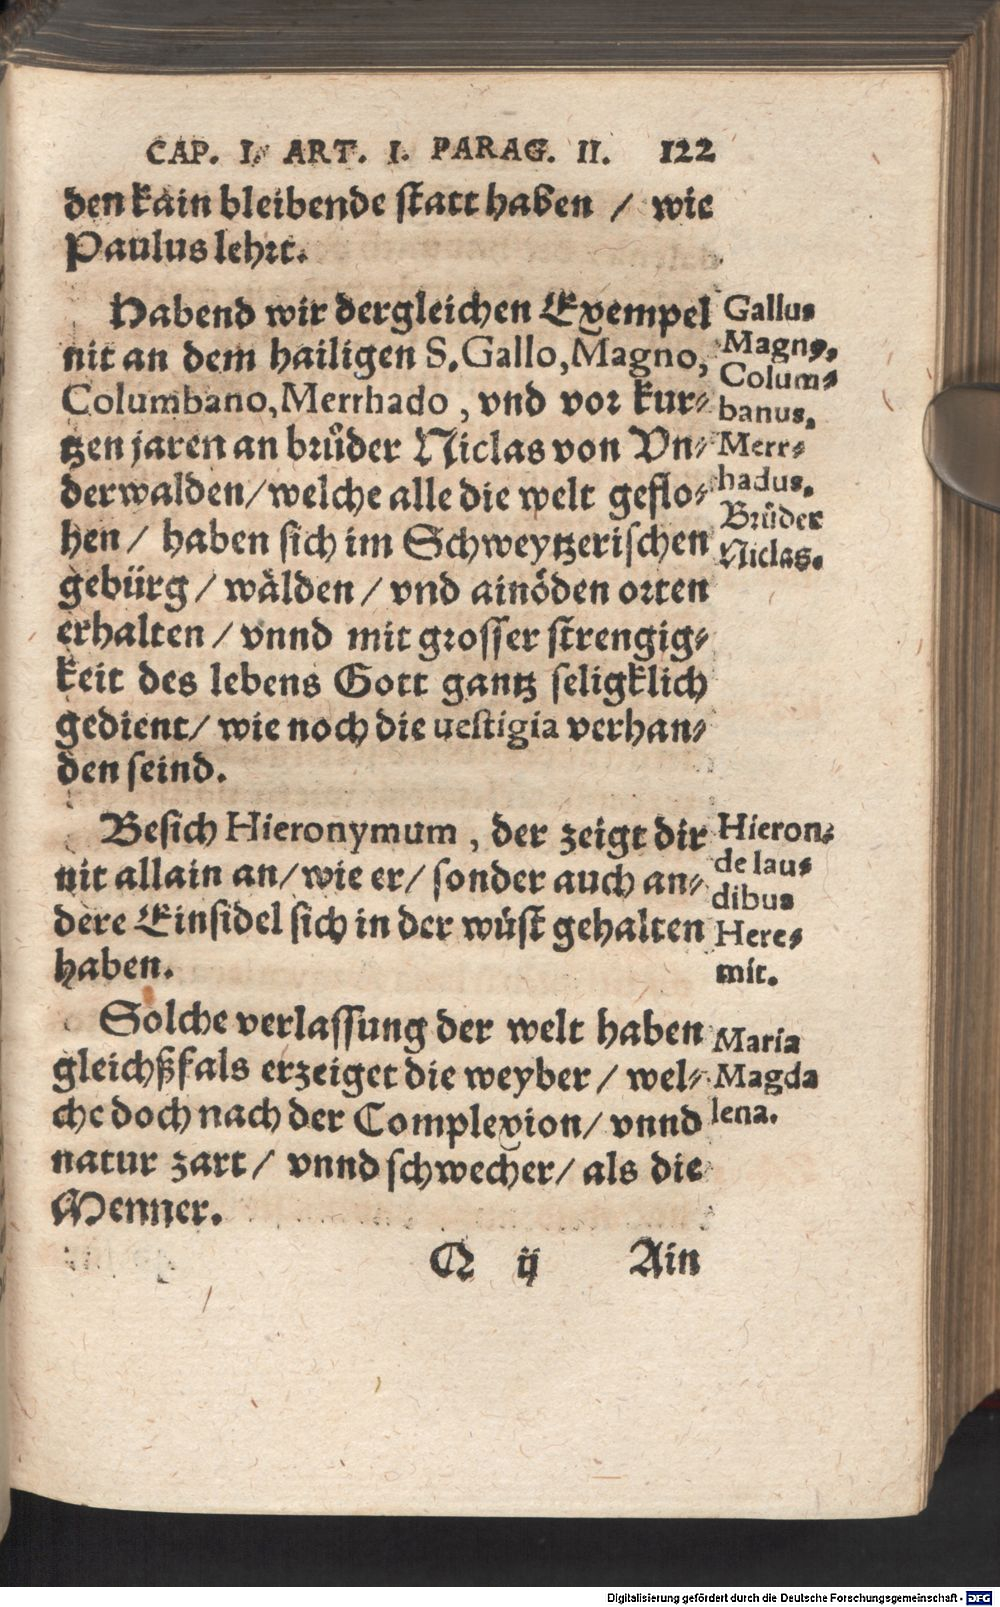 CAP. I. ART. I. PARAG. II. 122
den kain bleibende statt haben / wie
Paulus lehrt.
Habend wir dergleichen Exempel
nit an dem hailigen S. Gallo, Magno,
Columbano, Merrhado, vnd vor kur⸗
tzen jaren an brůder Niclas von Vn⸗
derwalden/ welche alle die welt geflo⸗
hen / haben sich im Schweytzerischen
gebürg / wälden / vnd ainöden orten
erhalten / vnnd mit grosser strengig⸗
keit des lebens Gott gantz seligklich
gedient/ wie noch die uestigia verhan⸗
den seind.
Gallus
Magn⁹.
Colum⸗
banus.
Merr⸗
hadus.
Brůder
Niclas.
Besich Hieronymum, der zeigt dir
nit allain an/ wie er/ sonder auch an⸗
dere Einsidel sich in der wüst gehalten
haben.
Hieron:
de lau⸗
dibus
Here⸗
mit.
Solche verlassung der welt haben
gleichßfals erzeiget die weyber / wel⸗
che doch nach der Complexion/ vnnd
natur zart / vnnd schwecher/ als die
Menner.
Maria
Magda
lena.
Q ij Ain
Digitalisierung gefördert durch die Deutsche Forschungsgemeinschaft - DFG